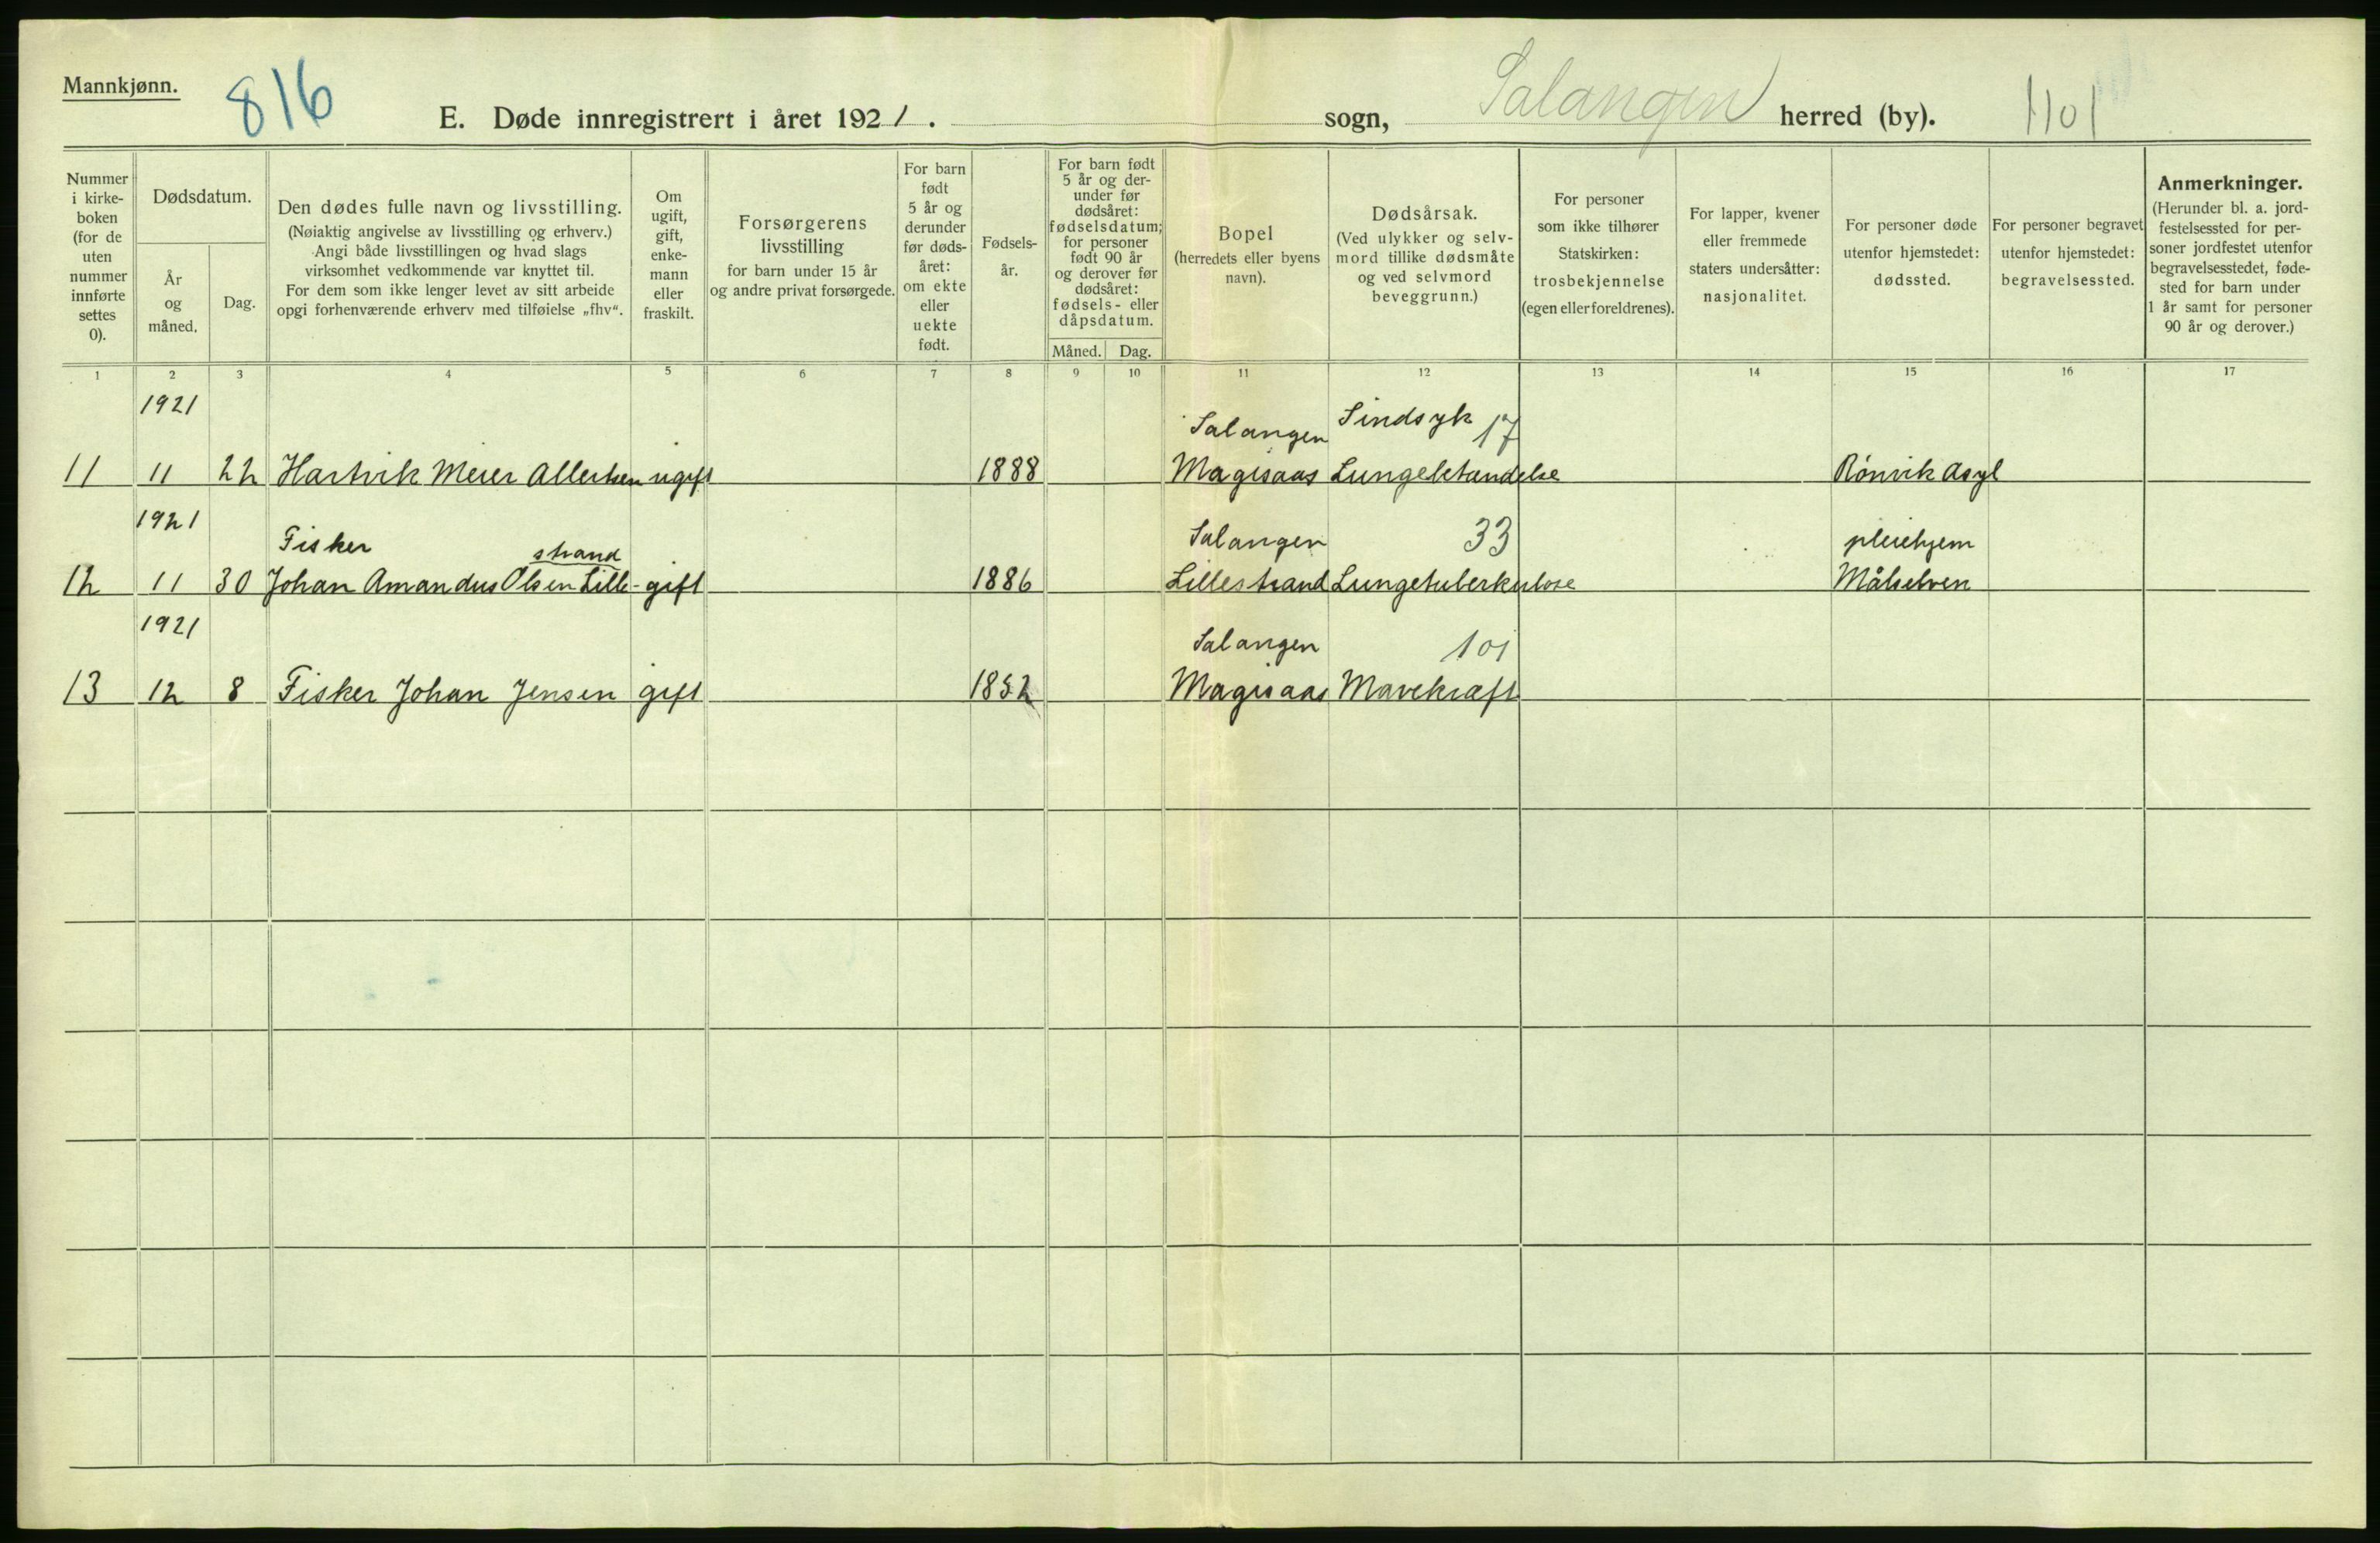 Mannkjønn.
816
E. Døde innregistrert i året 1921. sogn, Salangen herred (by). 1101
Nummer i kirke-boken (for de uten nummer innførte settes 0).
Dødsdatum.
År og måned.
Dag.
Den dødes fulle navn og livsstilling.
(Nøiaktig angivelse av livsstilling og erhverv.)
Angi både livsstillingen og hvad slags
virksomhet vedkommende var knyttet til.
For dem som ikke lenger levet av sitt arbeide
opgi forhenværende erhverv med tilføielse „fhv“.
Om ugift, gift, enke-mann eller fraskilt.
Forsørgerens livsstilling
for barn under 15 år
og andre privat forsørgede.
For barn født 5 år og derunder før døds-året: om ekte eller uekte født.
Fødsels-år.
For barn født 5 år og der-under før dødsåret: fødselsdatum; for personer født 90 år og derover før dødsåret: fødsels- eller dåpsdatum.
Måned. Dag.
Bopel
(herredets eller byens navn).
Dødsårsak.
(Ved ulykker og selv-mord tillike dødsmåte og ved selvmord beveggrunn.)
For personer som ikke tilhører Statskirken: trosbekjennelse (egen eller foreldrenes).
For lapper, kvener eller fremmede staters undersåtter: nasjonalitet.
For personer døde utenfor hjemstedet: dødssted.
For personer begravet utenfor hjemstedet: begravelsessted.
Anmerkninger.
(Herunder bl. a. jord-festelsessted for per-soner jordfestet utenfor begravelsesstedet, føde-sted for barn under 1 år samt for personer 90 år og derover.)
1 2 3 4 5 6 7 8 9 10 11 12 13 14 15 16 17
1921 Salangen Sindsyk 17
11 11 22 Hartvik Meier Allertsen ugift 1888 Magisaas Lungebetændelse Rönvik Asyl
1921 Fisker strand Salangen 33 pleiehjem
12 11 30 Johan Amandus Olsen Lille- gift 1886 Lillestrand Lungetuberkulose Målselven
1921 Salangen 101
13 12 8 Fisker Johan Jensen gift 1852 Magisaas Mavekræft